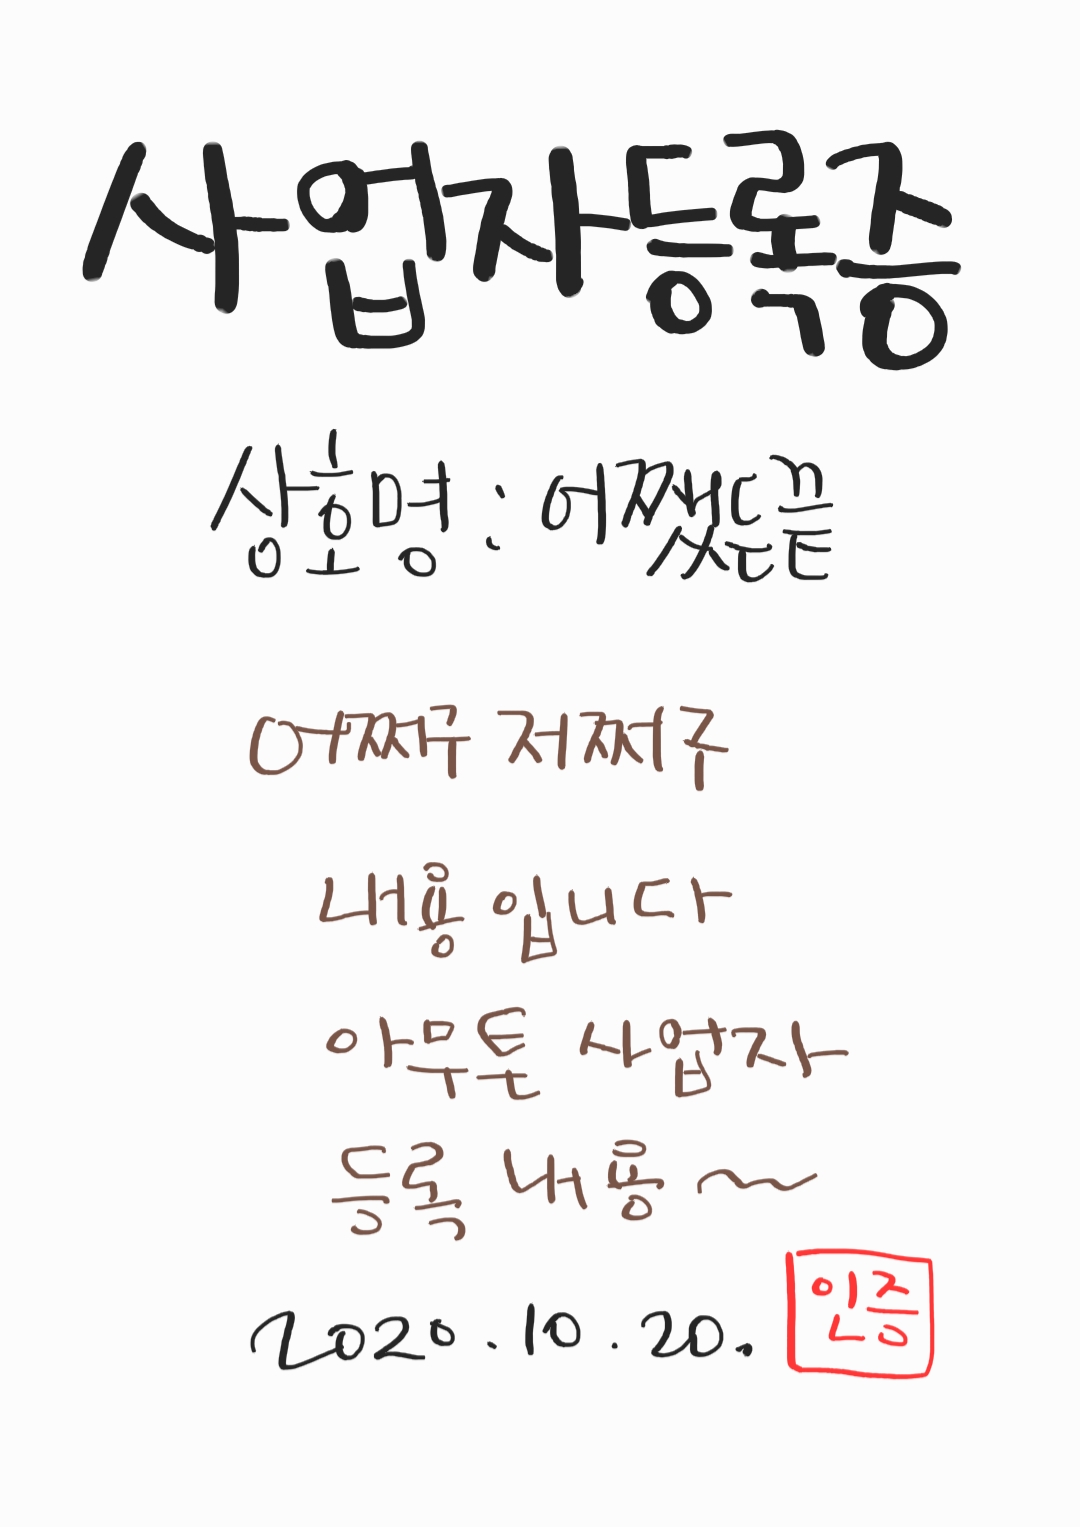 사업자등록증
상호명 : 어쨌든뜬
어쩌구 저쩌구
내용 입니다
아무튼 사업자
등록 내용~
2020.10.20.
인증